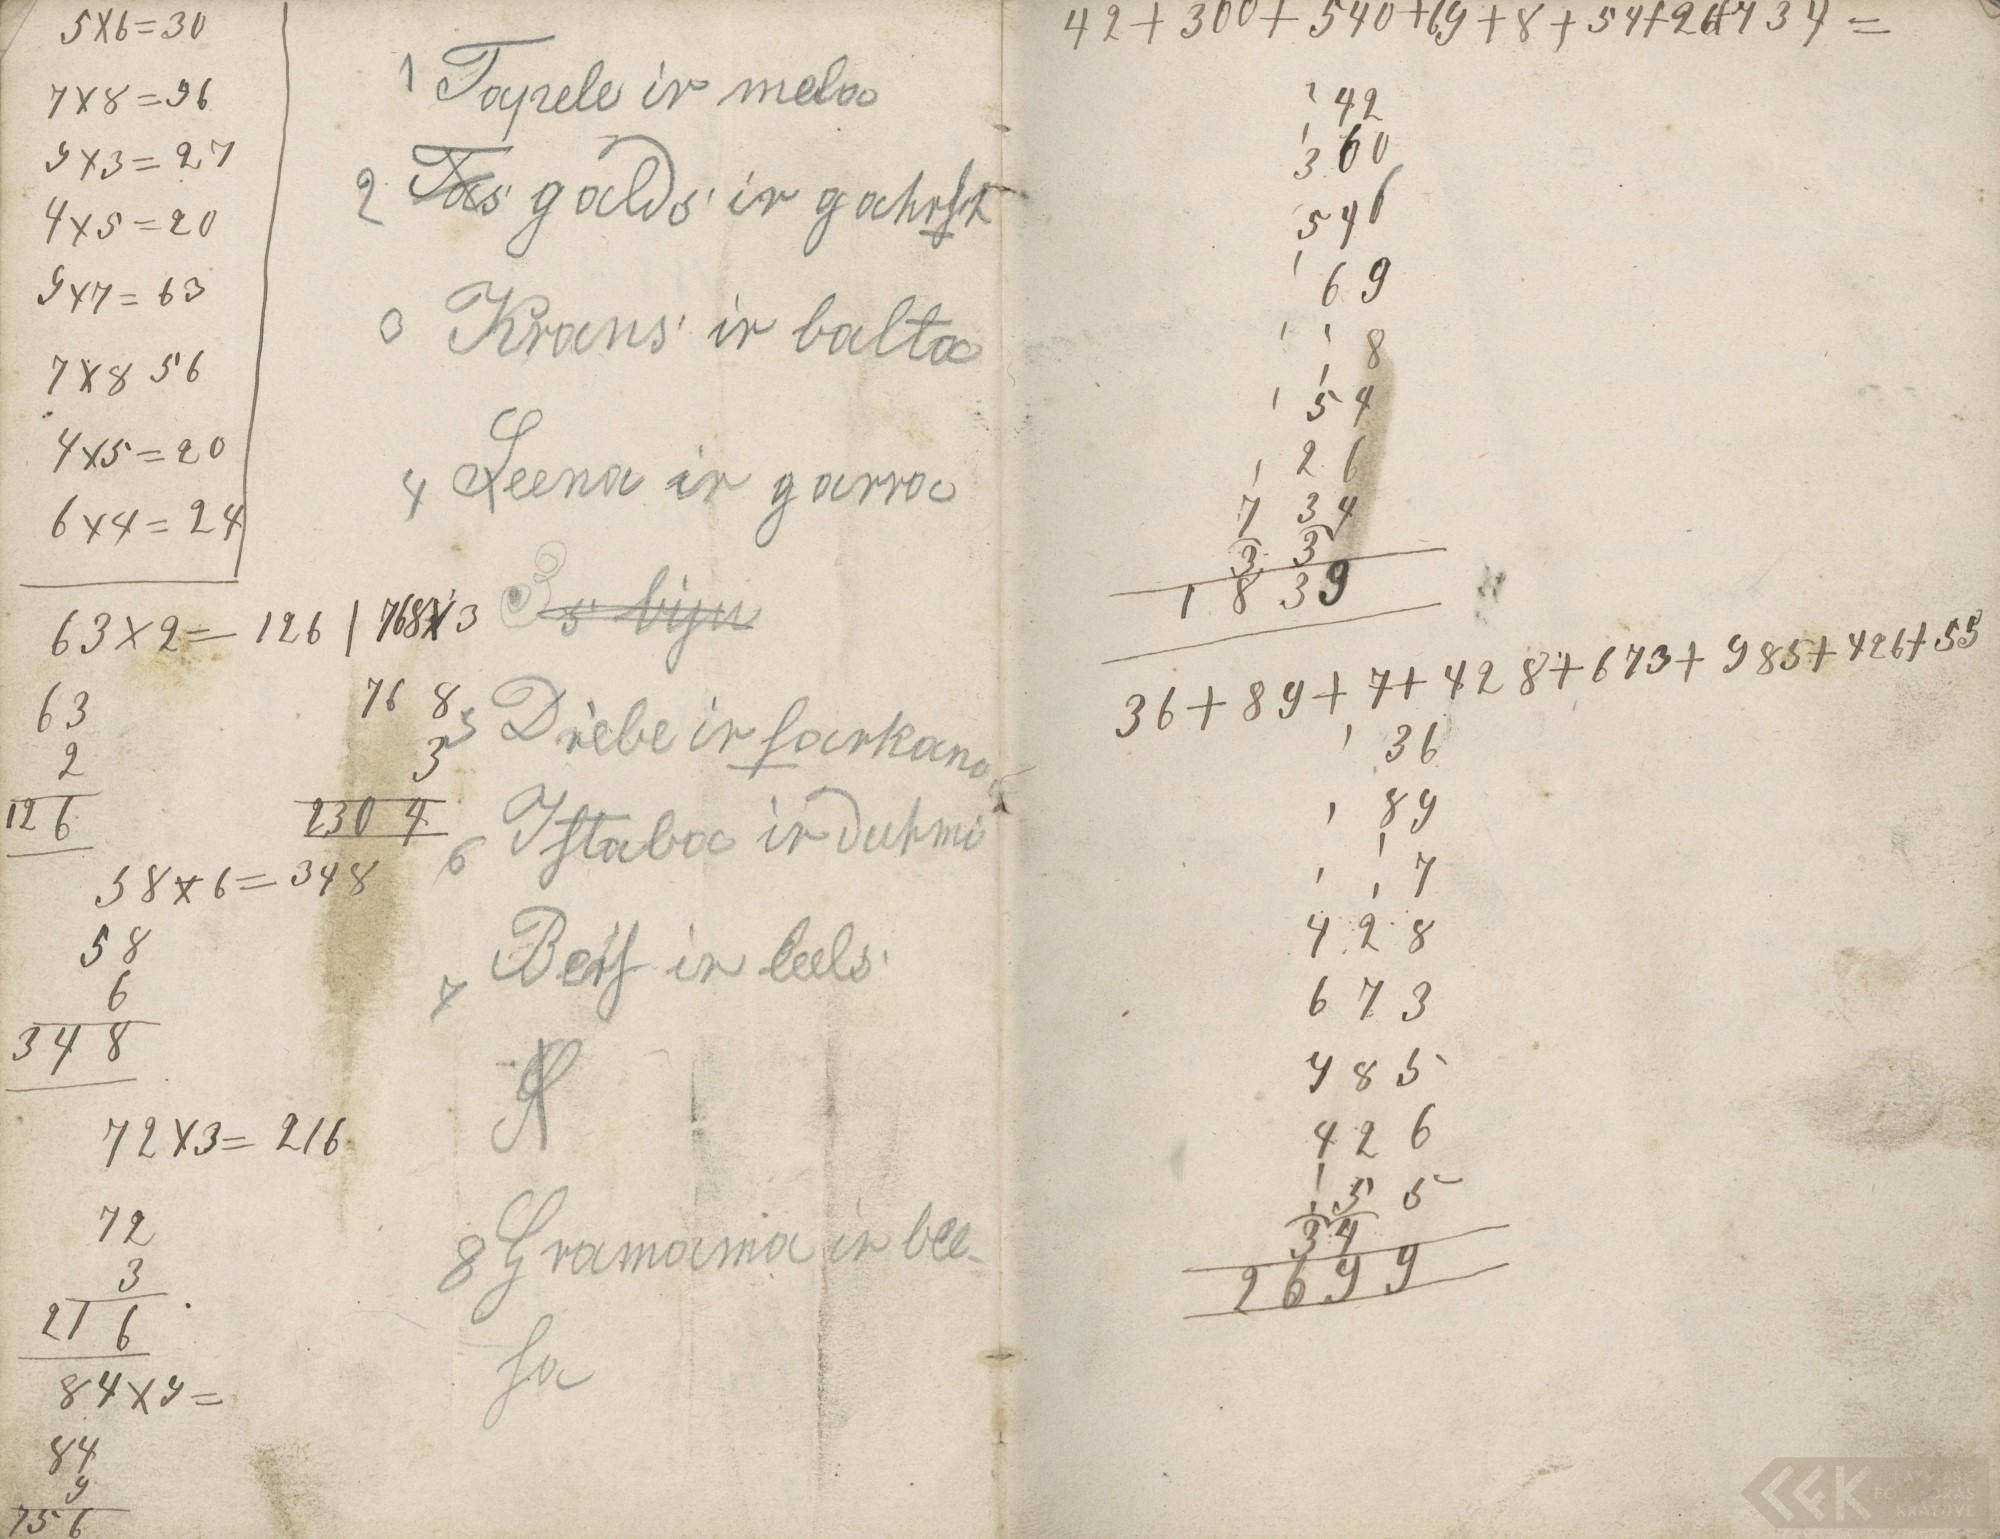 5x6=30
7x8=96
9x3=27
4x5=20
9x7=63
7x8 56
4x5=20
6x4=24
63x2=126 | 768x3
63
2
126
76 8
3
2304
58x6=348
58
6
348
72x3=216
72
3
216
84x9=
84
9
756
1 Tapele ir mela
2 Tas galds ir gahrſch
3 Krans ir balta
4 Seena ir garra
5 Drebe ir ſarkana
6 Iſtaba ir duhmi
7 Berſ ir leels
8 Gramama ir bee-
ſa
42+300+540+69+8+54+26+734=
42
360
546
69
8
54
26
734
3 3
1839
36+89+7+428+673+985+426+55
36
89
7
428
673
985
426
55
34
2699